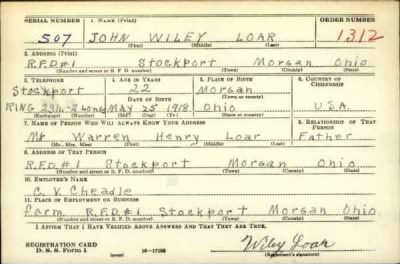 SERIAL NUMBER 1. NAME (Print) ORDER NUMBER
507 JOHN WILEY LOAR 1312
(First) (Middle) (Last)
2. ADDRESS (Print)
R.F.D.#1 Stockport Morgan Ohio
(Number and street or R. F. D. number) (Town) (County) (State)
3. TELEPHONE 4. AGE IN YEARS 5. PLACE OF BIRTH 6. COUNTRY OF CITIZENSHIP
Stockport 22 Morgan
DATE OF BIRTH (Town or county)
RING 2 Long May 25 1918 Ohio U.S.A.
(Exchange) (Number) (Mo.) (Day) (Yr.) (State or country)
7. NAME OF PERSON WHO WILL ALWAYS KNOW YOUR ADDRESS 8. RELATIONSHIP OF THAT PERSON
Mr Warren Henry Loar Father
(Mr., Mrs., Miss) (First) (Middle) (Last)
9. ADDRESS OF THAT PERSON
R.F.D.#1 Stockport Morgan Ohio
(Number and street or R. F. D. number) (Town) (County) (State)
10. EMPLOYER'S NAME
C. V. Cheadle
11. PLACE OF EMPLOYMENT OR BUSINESS
farm R.F.D#1 Stockport Morgan Ohio
(Number and street or R. F. D. number) (Town) (County) (State)
I AFFIRM THAT I HAVE VERIFIED ABOVE ANSWERS AND THAT THEY ARE TRUE.
REGISTRATION CARD Wiley Loar
D. S. S. Form 1 (over) (Registrant's signature)